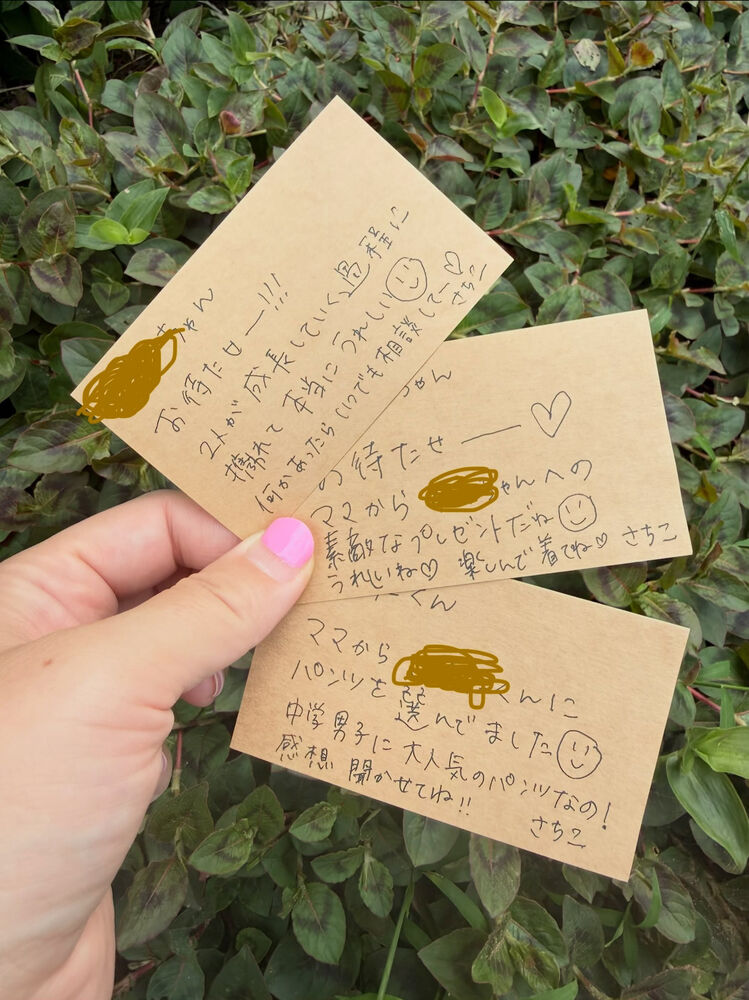 ちゃん
お待たせー!!!
2人が成長していく過程に
携れて本当にうれしい
何かあったらいつでも相談してー♡
さちこ
ちゃん
お待たせー♡
ママから ちゃんへの
素敵なプレゼントだね
うれしいね♡ 楽しんで着てね♡ さちこ
くん
ママから くんに
パンツを選んでました
中学男子に大人気のパンツなの!
感想聞かせてね!!
さちこ